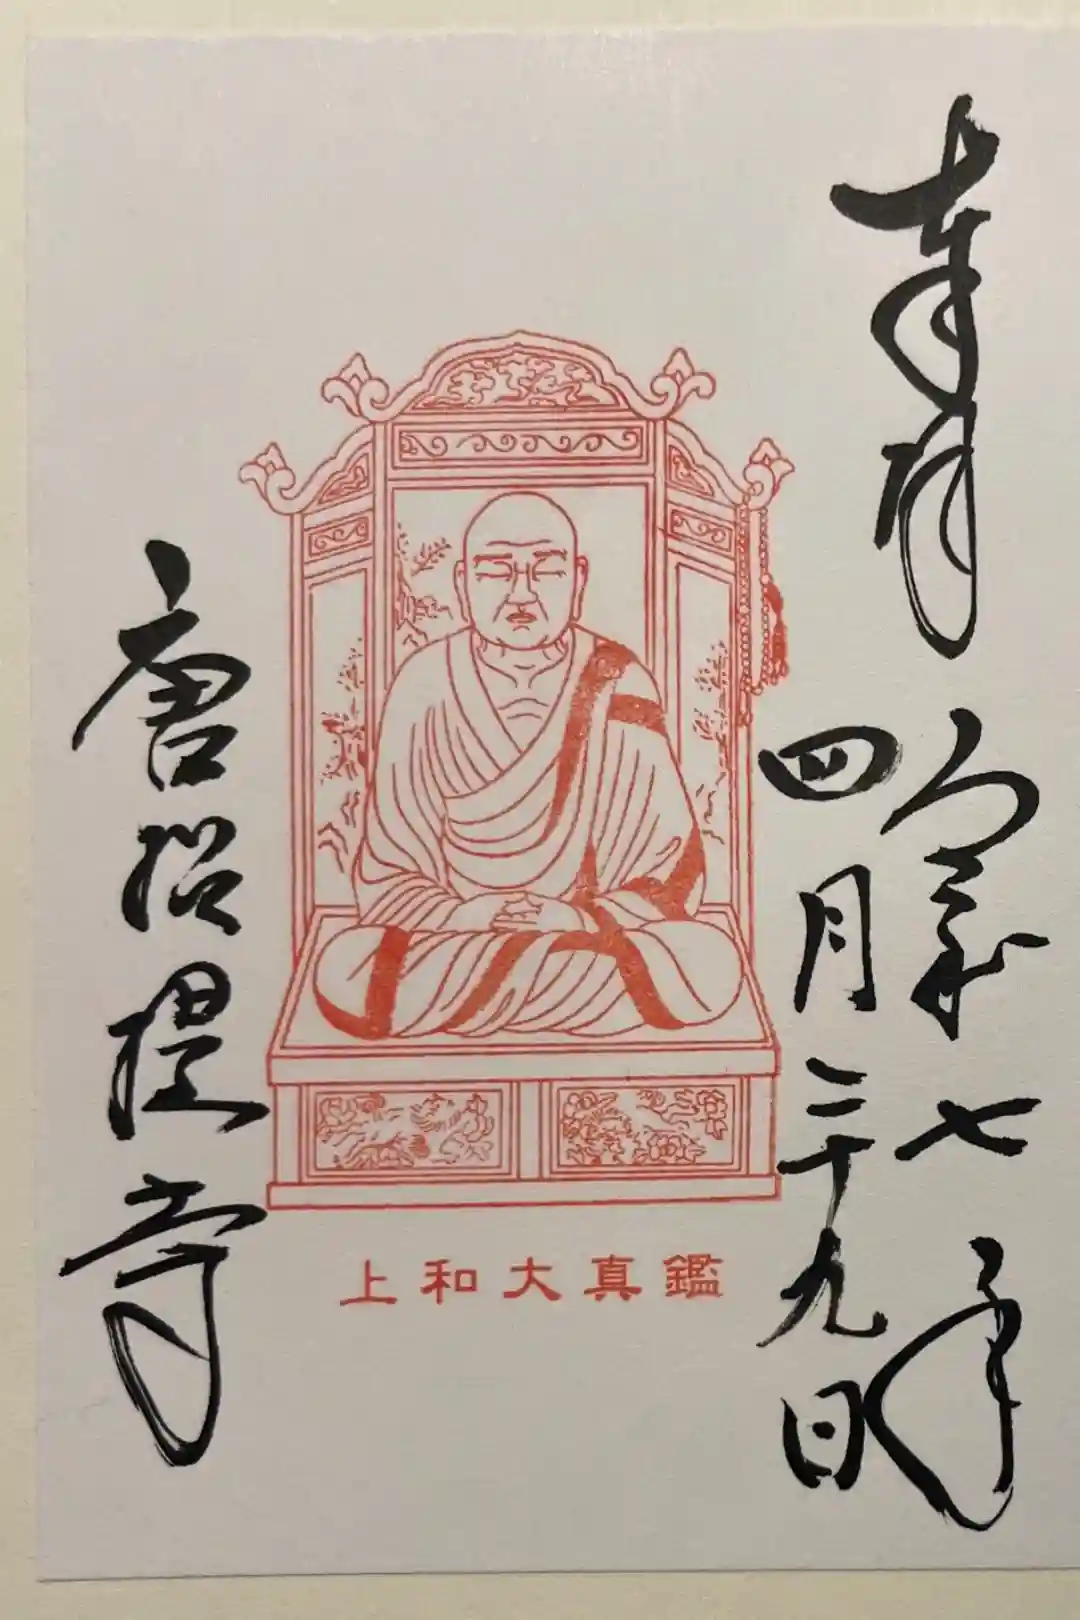 奉拝
令和七年
四月二十九日
上和大真鑑
唐招提寺